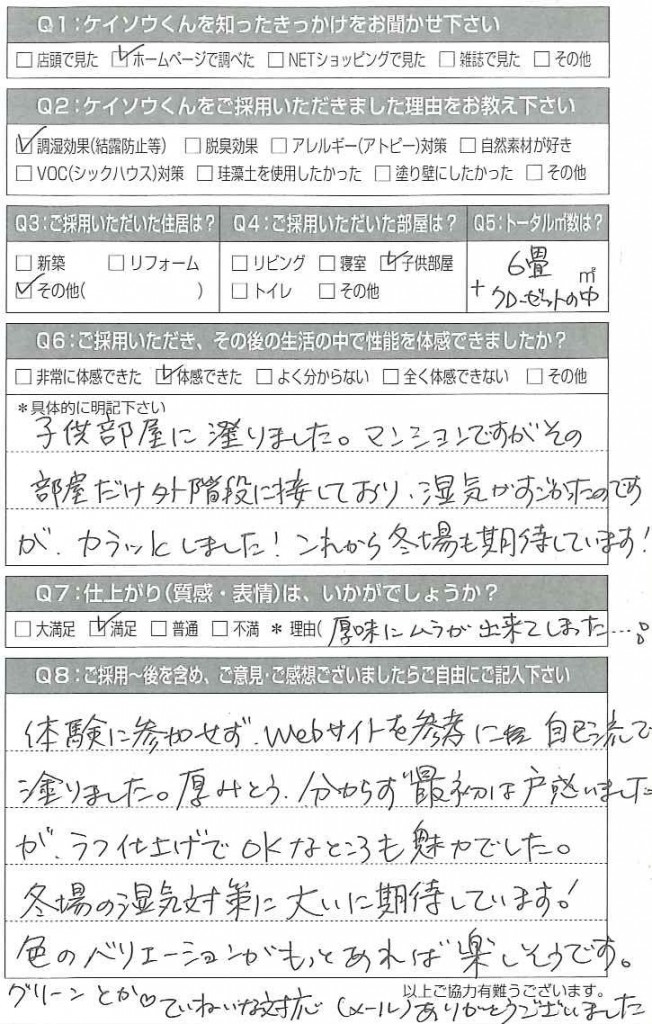 Q1:ケイソウくんを知ったきっかけをお聞かせ下さい
□店頭で見た ☑ホームページで調べた □NETショッピングで見た □雑誌で見た □その他
Q2:ケイソウくんをご採用いただきました理由をお教え下さい
☑調湿効果(結露防止等) □脱臭効果 □アレルギー(アトピー)対策 □自然素材が好き
□VOC(シックハウス)対策 □珪藻土を使用したかった □塗り壁にしたかった □その他
Q3:ご採用いただいた住居は?
□新築 □リフォーム
☑その他( )
Q4:ご採用いただいた部屋は?
□リビング □寝室 ☑子供部屋
□トイレ □その他
Q5:トータル㎡数は?
6畳 ㎡
+クローゼットの中
Q6:ご採用いただき、その後の生活の中で性能を体感できましたか?
□非常に体感できた ☑体感できた □よく分からない □全く体感できない □その他
*具体的に明記下さい
子供部屋に塗りました。マンションですがその
部屋だけ外階段に接しており、湿気がすごかったのです
が、カラッとしました!これから冬場も期待しています!
Q7:仕上がり(質感・表情)は、いかがでしょうか?
□大満足 ☑満足 □普通 □不満 *理由(厚味にムラが出来てしまった…。
Q8:ご採用〜後を含め、ご意見・ご感想ございましたらご自由にご記入下さい
体験に参加せず、Webサイトを参考に 自己流で
塗りました。厚みとう、分からず最初は戸惑いました
が、ラフ仕上げでOKなところも魅力でした。
冬場の湿気対策に大いに期待しています!
色のバリエーションがもっとあれば楽しそうです。
グリーンとか♡ ていねいな対応(メール)ありがとうございました
以上ご協力有難うございます。